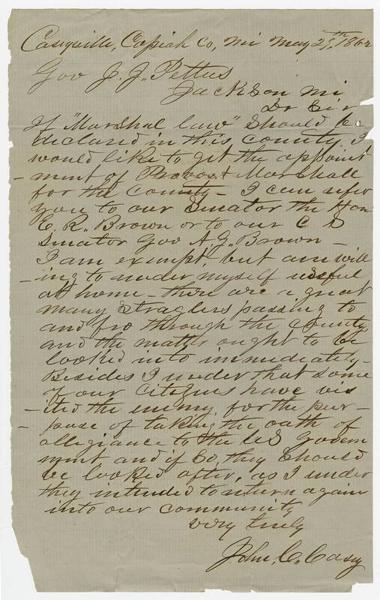 Caseyville, Copiah Co, Mi May 29th 1862
Gov J. J. Pettus
Jackson Mi
Dr Sir
If "Marshal law" Should be
declared in this county, I
would like to get the appoint
-ment of Provost Marshall
for the County - I can refer
you to our Senator the Hon
E. R. Brown or to our C S
Senator Gov A. G. Brown -
I am exempt, but am will
-ing to render myself useful
at home - there are a great
many straglers passing to
and fro through the County
and the matter ought to be
looked into immediately -
Besides I under that some
of our citizens have vis
-ited the enemy, for the pur-
-pose of taking the oath of
allegiance to the US Govern
ment and if So, they should
be looked after, as I under
they intended to return again
into our community
very truly
John, C. Casey